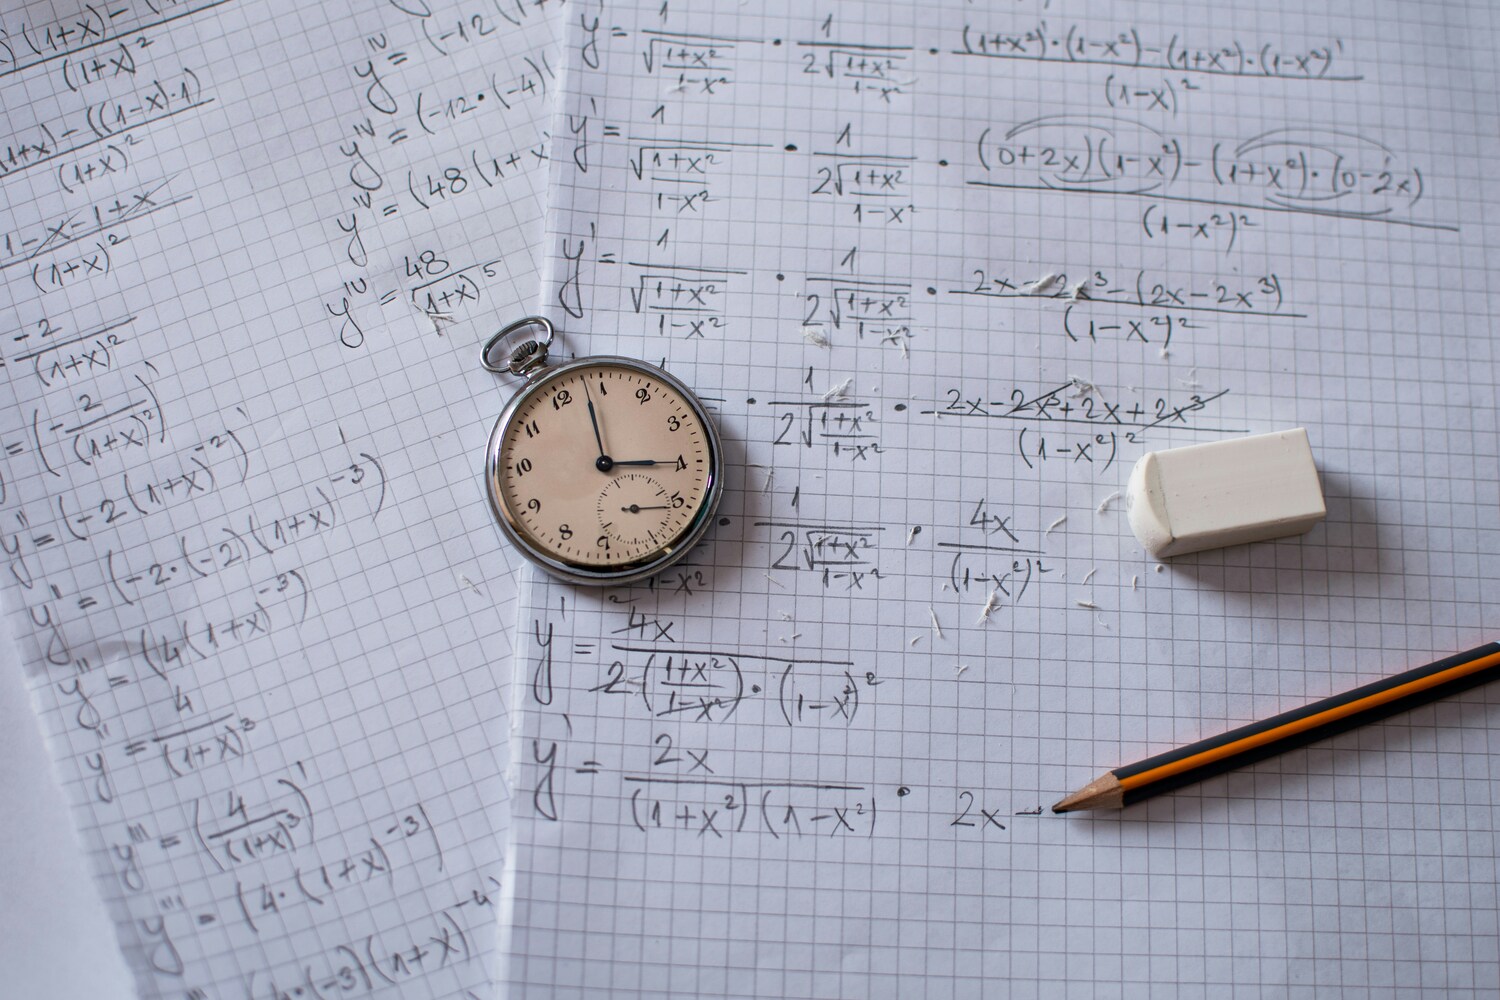 (1+x) -
(1+x)²
(1+x) - ((1-x)·1)
(1+x)²
1-x-1+x
(1+x)²
= -2/(1+x)²
= (-2/(1+x)²)'
y'' = (-2(1+x)⁻²)'
y'' = (-2·(-2)(1+x)⁻³)
y'' = (4(1+x)⁻³)
y'' = 4/(1+x)³
y''' = (4/(1+x)³)'
y''' = (4·(1+x)⁻³)
·(-3)(1+x)⁻⁴
yⁱᵛ = (-12(1+
yⁱᵛ = (-12·(-4)(
yⁱᵛ = (48(1+x
yⁱᵛ = 48/(1+x)⁵
y' = 1/√((1+x²)/(1-x²)) · 1/(2√((1+x²)/(1-x²))) · ((1+x²)'·(1-x²)-(1+x²)·(1-x²)')/(1-x)²
y' = 1/√((1+x²)/(1-x²)) · 1/(2√((1+x²)/(1-x²))) · ((0+2x)(1-x²)-(1+x²)·(0-2x))/(1-x²)²
y' = 1/√((1+x²)/(1-x²)) · 1/(2√((1+x²)/(1-x²))) · (2x-2x³-(2x-2x³))/(1-x²)²
· 1/(2√((1+x²)/(1-x²))) · (2x-2x³+2x+2x³)/(1-x²)²
1-x² · 1/(2√((1+x²)/(1-x²))) · 4x/(1-x²)²
y' = 4x/(2((1+x²)/(1-x²))·(1-x²)²)
y' = 2x/((1+x²)(1-x²)) · 2x -
12 1 2 3 4 5 7 8 9 10 11